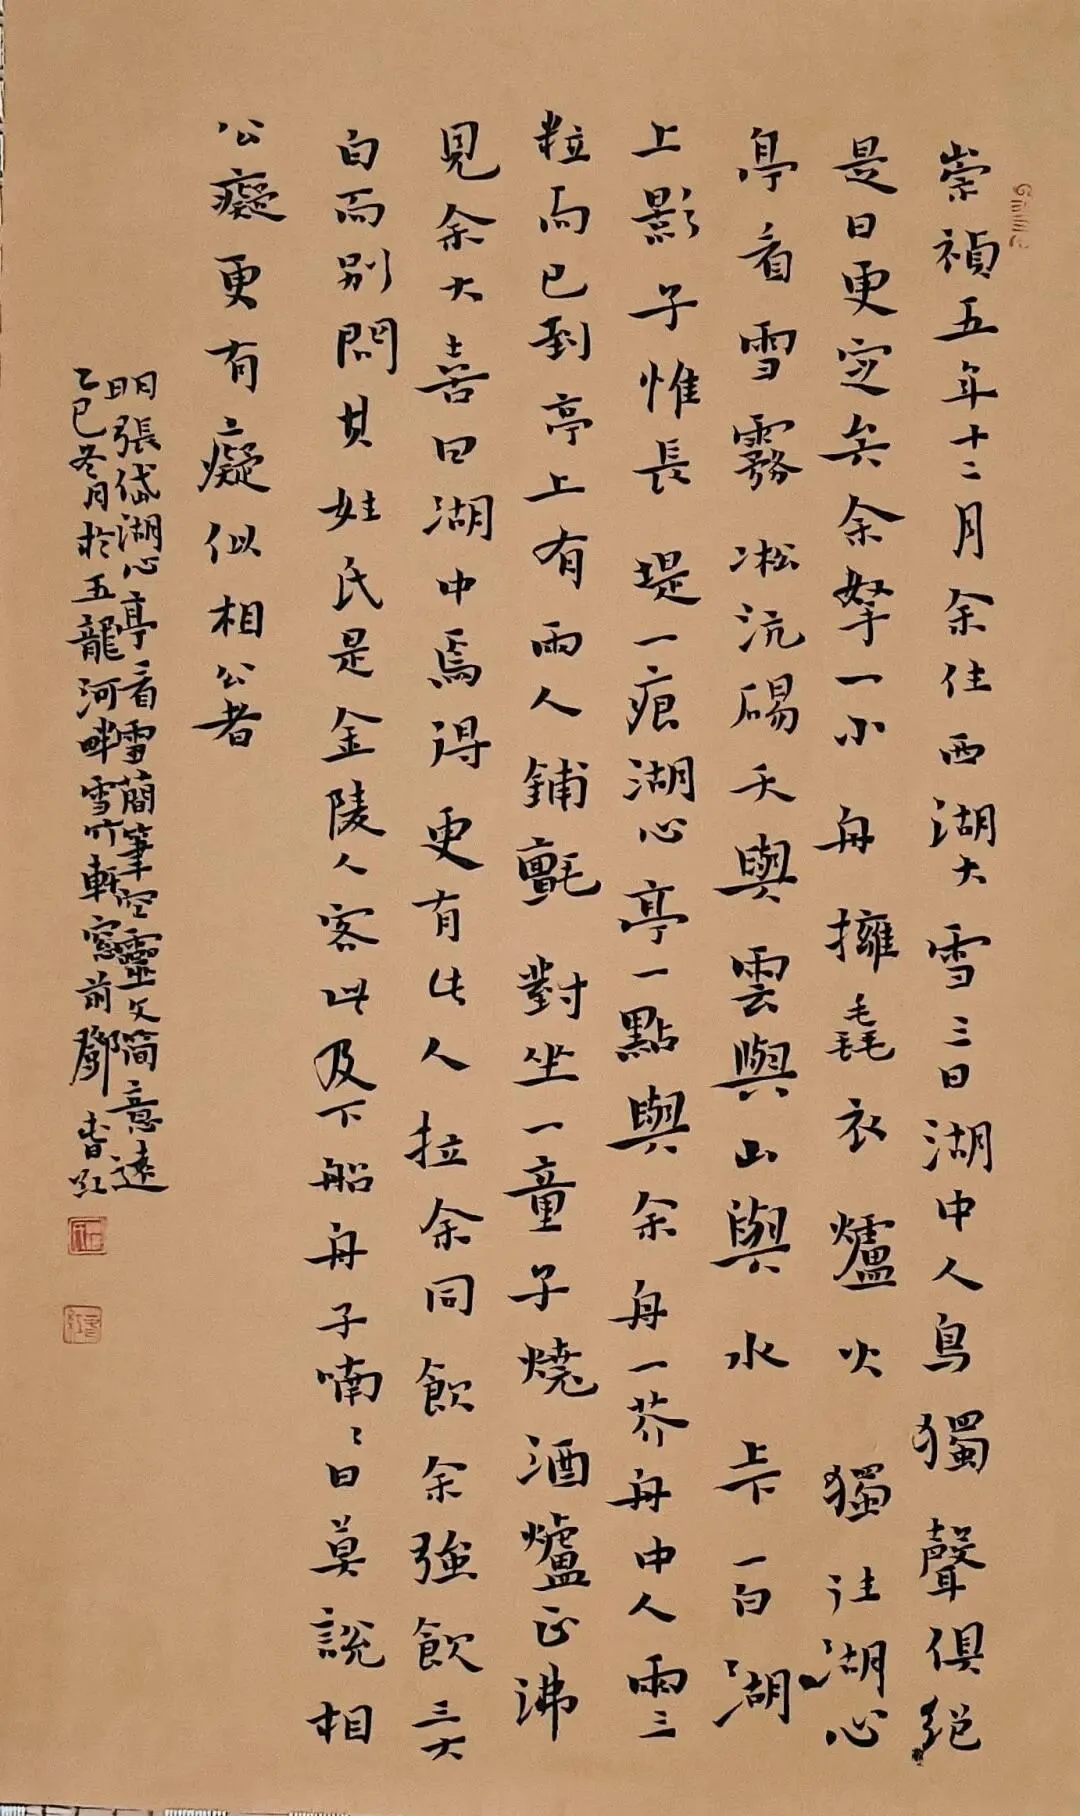 崇禎五年十二月余住西湖大雪三日湖中人鳥獨聲俱絕
是日更定矣余拏一小舟擁毳衣爐火獨往湖心
亭看雪霧凇沆碭天與雲與山與水上下一白湖
上影子惟長堤一痕湖心亭一點與余舟一芥舟中人兩三
粒而已到亭上有兩人鋪氈對坐一童子燒酒爐正沸
見余大喜曰湖中焉得更有此人拉余同飲余強飲三大
白而別問其姓氏是金陵人客此及下船舟子喃〻曰莫說相
公癡更有癡似相公者
明張岱湖心亭看雪簡筆空靈文简意遠
乙巳冬月於五龍河畔雪竹軒窓前鄧春紅